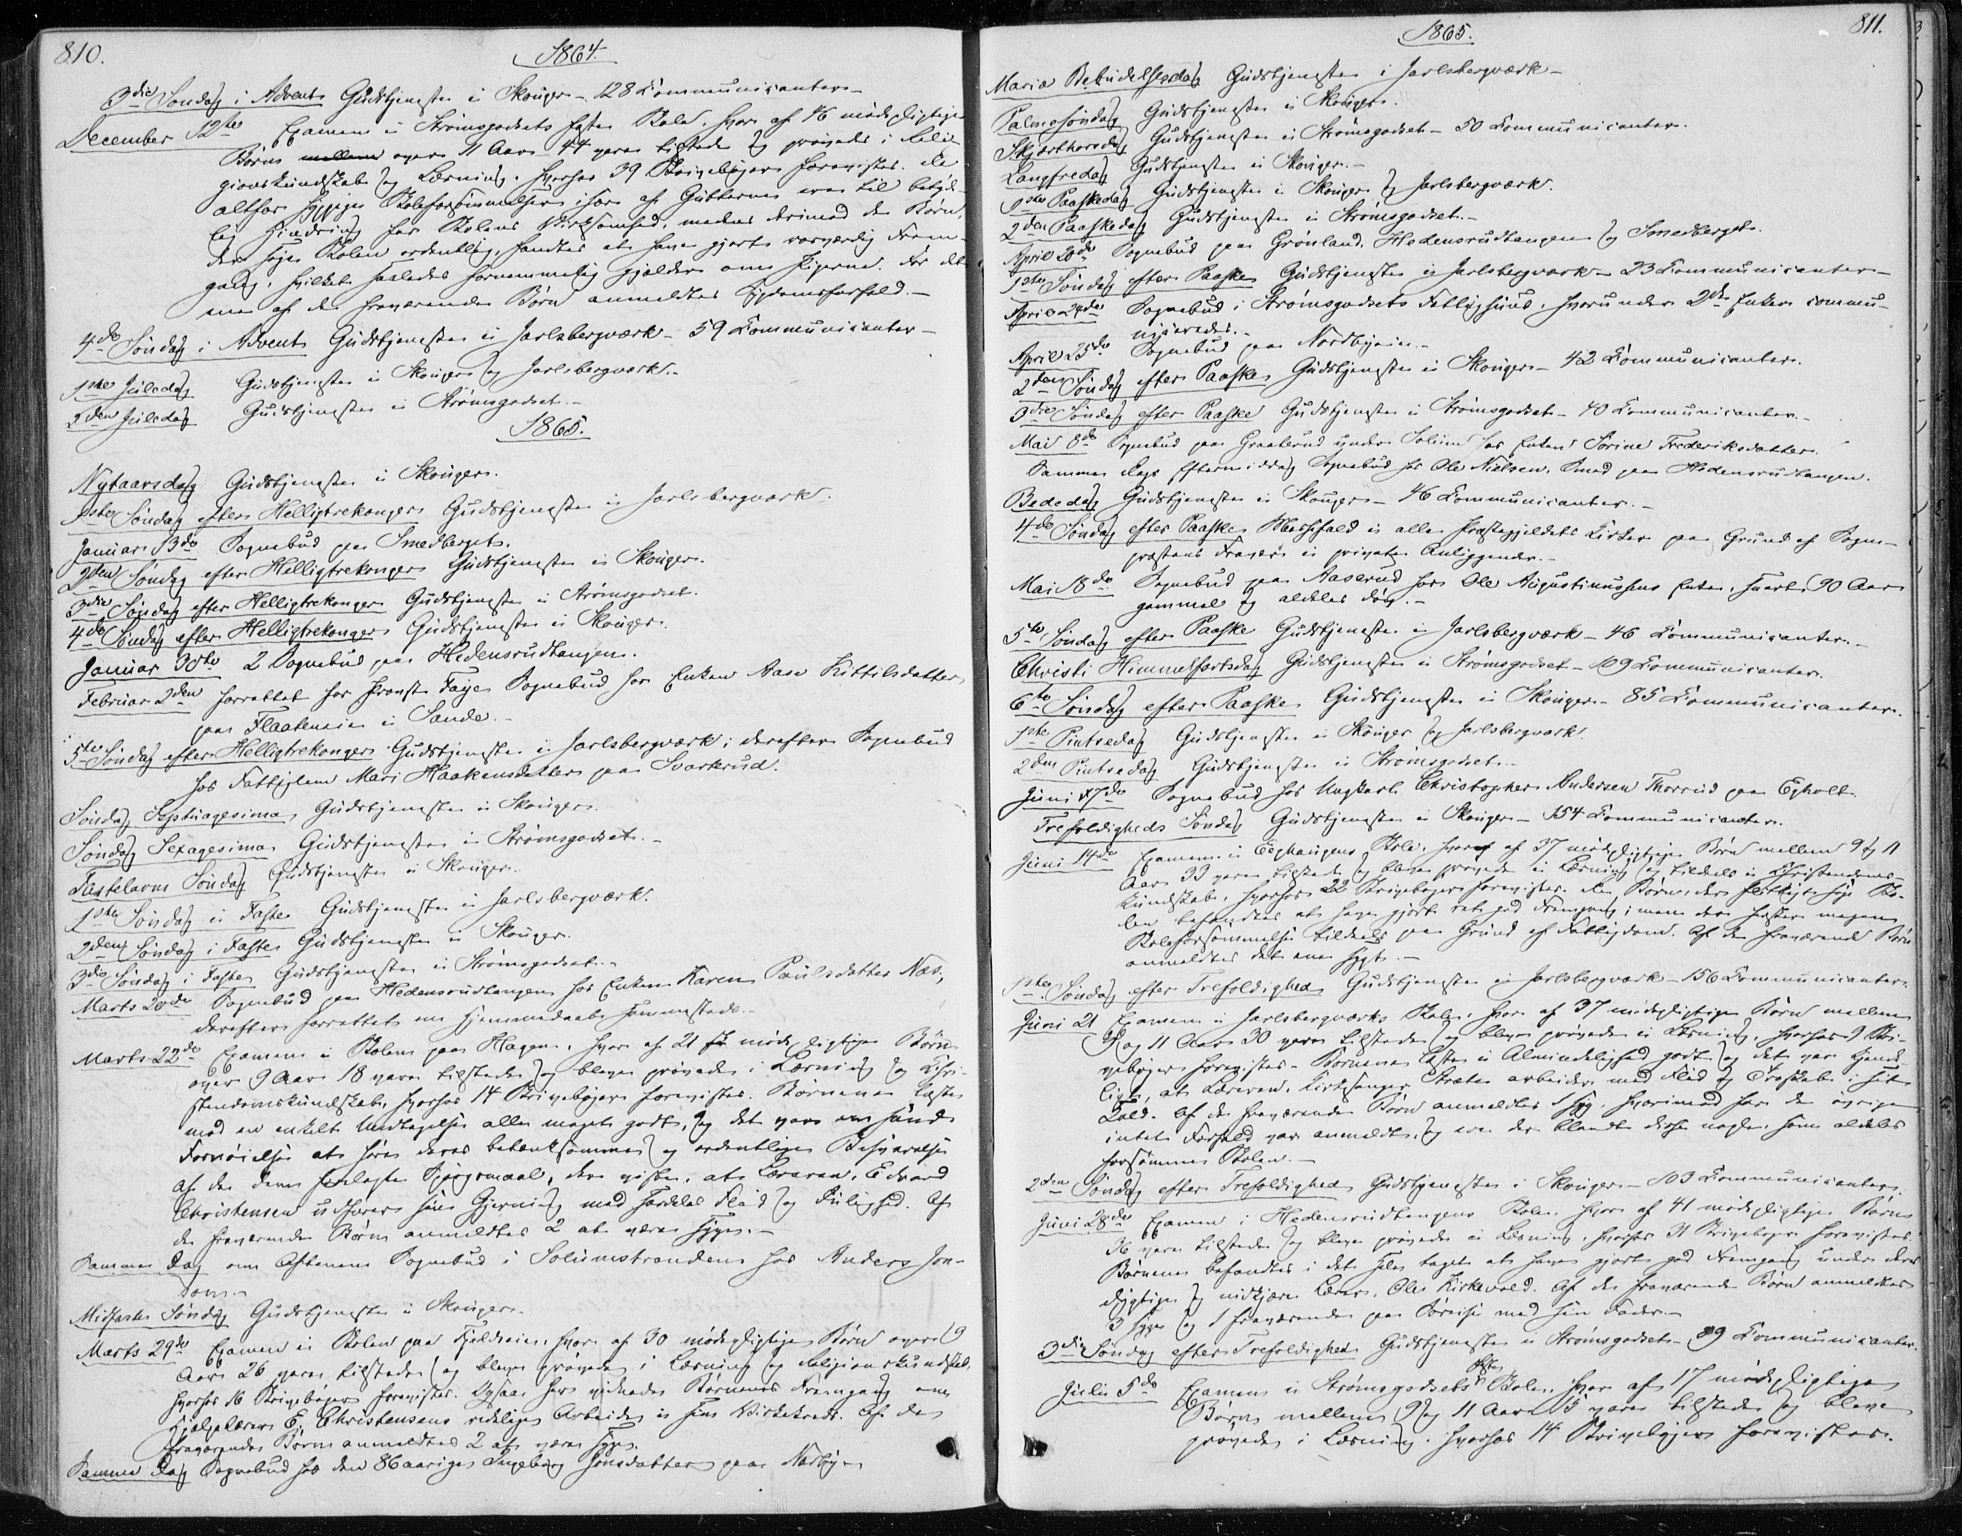 810.
1864.
3die Søndag i Advent, Gudstjeneste i Skouger – 128 Communicanter –
December 12te Examen i Strømsgodsets faste Skole, hvor af 46 mødepligtige
Børn mellem over 11 Aar 44 vare tilstede og prøvede i Reli-
gionskundskab og Læsning, hvorhos 39 Skrivebøger forevistes. De
altfor hyppige Skoleforsømmelser især af Gutterne ere til betyde-
lig Hindring for Skolens Virksomhed, medens derimod de Børn,
der søge Skolen ordentlig, fandtes at have gjort Frem-
gang, hvilket saaledes fornemmelig gjælder om Pigerne. For det
ene af de fraværende Børn anmeldtes Sygdomsforfald. –
4de Søndag i Advent Gudstjeneste i Jarlsbergværk – 59 Communicanter –
1ste Juledag Gudstjeneste i Skouger og Jarlsbergværk. –
2den Juledag Gudstjeneste i Strømsgodset. –
1865.
Nytaarsdag Gudstjeneste i Skouger.
1ste Søndag efter Helligtrekonger Gudstjeneste i Jarlsbergværk.
Januar 13de Sognebud paa Smedberget.
2den Søndag efter Helligtrekonger Gudstjeneste i Skouger.
3die Søndag efter Helligtrekonger Gudstjeneste i Strømsgodset.
4de Søndag efter Helligtrekonger Gudstjeneste i Skouger.
Januar 30te 2 Sognebud paa Hedensrudtangen.
Februar 2den forrettet for Provst Faye Sognebud hos Enken Aase Kittilsdatter
paa Flaateneie i Sande. –
5te Søndag efter Helligtrekonger Gudstjeneste i Jarlsbergværk; derefter Sognebud
hos Fattiglem Mari Haakensdatter paa Svartrud.
Søndag Septuagesima Gudstjeneste i Skouger.
Søndag Sexagesima Gudstjeneste i Strømsgodset. –
Fastelavns Søndag Gudstjeneste i Skouger.
1ste Søndag i Faste Gudstjeneste i Jarlsbergværk.
2den Søndag i Faste Gudstjeneste i Skouger.
3die Søndag i Faste Gudstjeneste i Strømsgodset. –
Marts 20de Sognebud paa Hedensrudtangen hos Enken Karen Paulsdatter Næs,
derefter forrettet en Hjemmedaab sammesteds. –
Marts 22de Examen i Skolen paa Hagen, hvor af 21 mødepligtige Børn
over 9 Aar 18 vare tilstede og bleve prøvede i Læsning og Chri-
stendomskundskab, hvorhos 14 Skrivebøger forevistes. Børnene læste
med en enkelt Undtagelse alle meget godt, og det var en sand
Fornøielse at høre deres betænksomme og ordentlige Besvarelse
af de dem forelagte Spørgsmaal, der viste, at Læreren, Edvard
Christensen udfører sin Gjerning med Flid og Dulighed. Af
de fraværende Børn anmeldtes 2 at være syge. –
Samme Dag om Aftenen Sognebud i Solumstranden hos Anders Jon-
sen. –
Midfaste Søndag Gudstjeneste i Skouger. –
Marts 29de Examen i Skolen paa Fjeldseie, hvor af 30 mødepligtige Børn over 9
Aar 26 vare tilstede og bleve prøvede i Læsning og Religionskundskab,
hvorhos 16 Skrivebøger forevistes. Ogsaa her vidnede Børnenes Fremgang om
Hjælpelærer E. Christensens Arbeide i sin Virkekreds. Af de
fraværende Børn anmeldtes 2 at være syge.
Samme Dag Sognebud hos den 86aarige Ingeborg Jonsdatter paa Narby –
1865.
811.
Mariæ Bebudelsesdag Gudstjeneste i Jarlsbergværk –
Palmesøndag Gudstjeneste i Skouger.
Skjærthorsdag Gudstjeneste i Strømsgodset – 50 Communicanter.
Langfredag Gudstjeneste i Skouger. –
1ste Paaskedag Gudstjeneste i Skouger og Jarlsbergværk.
2den Paaskedag Gudstjeneste i Strømsgodset. –
April 20de Sognebud paa Grønland, Hedensrudtangen og Smedberget.
1ste Søndag efter Paaske Gudstjeneste i Jarlsbergværk – 23 Communicanter –
April 24de Sognebud i Strømsgodsets Fattighuus, hvorunder 2de Enker commu-
niceredes. –
April 25de Sognebud paa Nordbyeie. –
2den Søndag efter Paaske Gudstjeneste i Skouger – 42 Communicanter.
3die Søndag efter Paaske Gudstjeneste i Strømsgodset – 40 Communicanter. –
Mai 8de Sognebud paa Graaterud under Solum hos Enken Sørine Frederiksdatter.
Samme Dags Eftermiddag Sognebud hos Ole Nielsen Smed paa Hedensrudtangen.
Bededag Gudstjeneste i Skouger – 46 Communicanter. –
4de Søndag efter Paaske Messefald i alle Præstegjeldets Kirker paa Grund af Sogne-
præstens Fravær i private Anliggender. –
Mai 18de Sognebud paa Aaserud hos Ole Augustinussens Enke, snart 90 Aar
gammel og aldeles døv. –
5te Søndag efter Paaske Gudstjeneste i Jarlsbergværk – 46 Communicanter. –
Christi Himmelfartsdag Gudstjeneste i Strømsgodset – 109 Communicanter.
6te Søndag efter Paaske Gudstjeneste i Skouger – 85 Communicanter.
1ste Pintsedag Gudstjeneste i Skouger og Jarlsbergværk.
2den Pintsedag Gudstjeneste i Strømsgodset. –
Juni 7de Sognebud hos Ungkarl Christopher Andersen Thorrud paa Egholt.
Trefoldigheds Søndag Gudstjeneste i Skouger – 154 Communicanter.
Juni 14de Examen i Eeghaugens Skole, hvor af 37 mødepligtige Børn mellem 9 og 11
Aar 33 vare tilstede og bleve prøvede i Læsning og tildels i Christendoms-
kundskab, hvorhos 22 Skrivebøger forevistes. De Børn, der flittigt søge Sko-
len befandtes at have gjort ret god Fremgang; men der finder megen
Skoleforsømmelse tildeels paa Grund af Fattigdom. Af de fraværende Børn
anmeldtes det ene sygt. –
1ste Søndag efter Trefoldighed Gudstjeneste i Jarlsbergværk – 156 Communicanter.
Juni 21 Examen i Jarlsbergværks Skole, hvor af 37 mødepligtige Børn mellem
9 og 11 Aar 30 vare tilstede og bleve prøvede i Læsning, hvorhos 9 Skri-
vebøger forevistes – Børnene læste i Almindelighed godt, og det var kjende-
ligt, at Læreren, Kirkesanger Stræte arbeider med Flid og Troskab i sit
Kald. Af de fraværende Børn anmeldtes 1 syg, hvorimod for de øvrige
intet Forfald var anmeldt, og ere der blandt disse nogle, som aldeles
forsømme Skolen. –
2den Søndag efter Trefoldighed Gudstjeneste i Skouger – 103 Communicanter.
Juni 28de Examen i Hedensrudtangens Skole, hvor af 41 mødepligtige Børn
36 vare tilstede og bleve prøvede i Læsning, hvorhos 31 Skrivebøger forevistes.
Børnene befandtes i det Hele taget at have gjort god Fremgang under deres
dygtige og nidkjære Lærer, Ole Kirkevold. Af de fraværende Børn anmeldtes
3 syge og 1 fraværende paa Søreise med sin Fader. –
3die Søndag efter Trefoldighed Gudstjeneste i Strømsgodset – 89 Communicanter.
Juli 5te Examen i Strømsgodsets faste Skole, hvor af 17 mødepligtige
Børn mellem 9 og 11 Aar 15 vare tilstede og bleve
prøvede i Læsning, hvorhos 14 Skrivebøger forevistes.